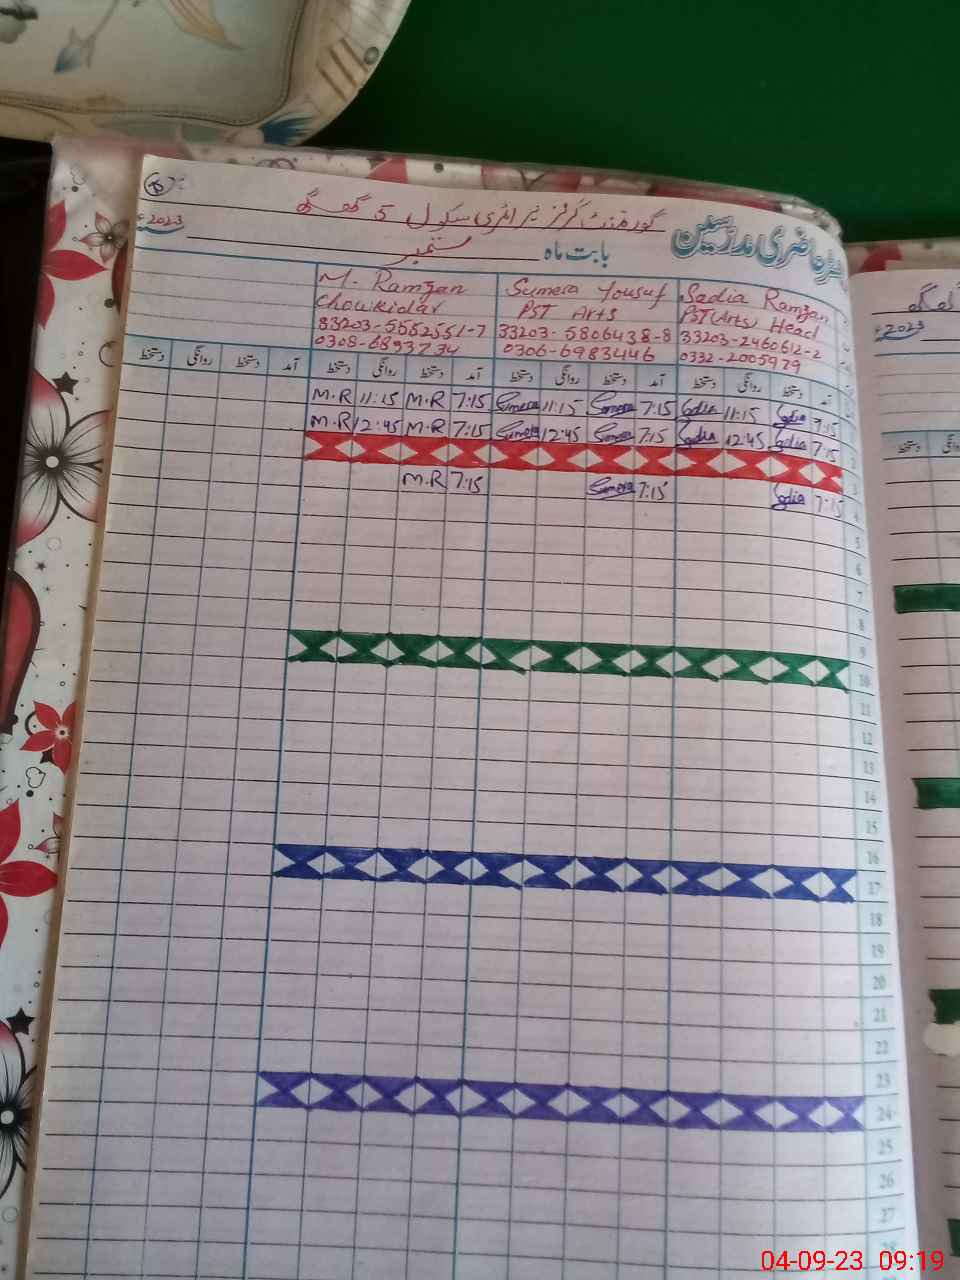 رجسٹر حاضری مدرسین
گورنمنٹ گرلز پرائمری سکول 5 گھگھ
بابت ماہ ستمبر 2023ء
Sadia Ramzan
PST(Arts) Head
33203-2460612-2
0332-2005979
Sumera Yousuf
PST Arts
33203-5806438-8
0306-6983446
M. Ramzan
Chowkidar
33203-5552551-7
0308-6893734
آمد دستخط روانگی دستخط آمد دستخط روانگی دستخط آمد دستخط روانگی دستخط آمد دستخط روانگی دستخط
7:15 Sadia 11:15 Sadia 7:15 Sumera 11:15 Sumera 7:15 M.R 11:15 M.R
2 7:15 Sadia 12:45 Sadia 7:15 Sumera 12:45 Sumera 7:15 M.R 12:45 M.R
3
4 7:15 Sadia 7:15 Sumera 7:15 M.R
5
6
7
8
9
10
11
12
13
14
15
16
17
18
19
20
21
22
23
24
25
26
27
28
2023ء
دستخط
04-09-23 09:19